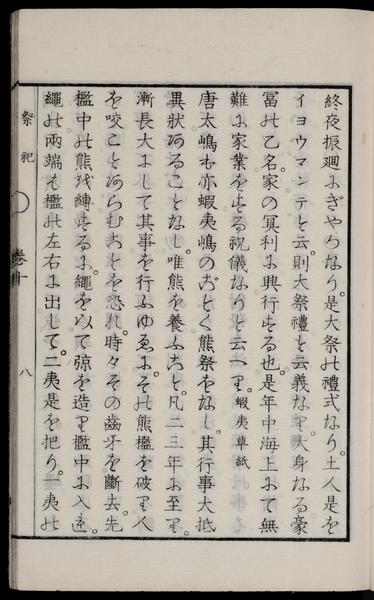 終夜振廻にぎやかなり。是大祭の禮式なり。土人是を
イヨウマンテと云。則大祭禮と云義なり。大身なる豪
冨の乙名家の冥利に興行する也。是年中海上にて無
難に家業をする祝儀なりと云へり。蝦夷草紙
唐太嶋も亦蝦夷嶋のごとく熊祭をなし。其行事大抵
異狀あることなし。唯熊を養ふこと。凡二三年に至り。
漸長大にして其事を行ふゆゑに。その熊檻を破り人
を咬ことあらむことを恐れ。時々その齒牙を斷去。先
檻中の熊を縛するに。繩を以て弶を造り檻中に入。
繩の兩端を檻の左右に出して。二夷是を把り。一夷の
祭祀
卷十
八